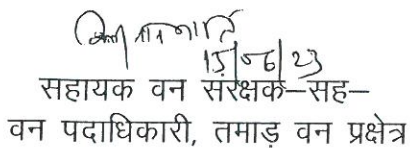 15/06/23
सहायक वन संरक्षक–सह–
वन पदाधिकारी, तमाड़ वन प्रक्षेत्र